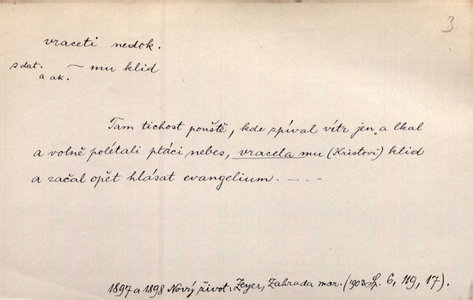 3
vraceti nedok.
s dat. — mu klid
a ak.
Tam tichost pouště, kde zpíval vítr jen a lkal
a volně polétali ptáci nebes, vracela mu (Kristovi) klid
a začal opět hlásat evangelium. — . —
1897 a 1898 Nový život: Zeyer, Zahrada mar. (1903 Sp. 6, 119, 17).